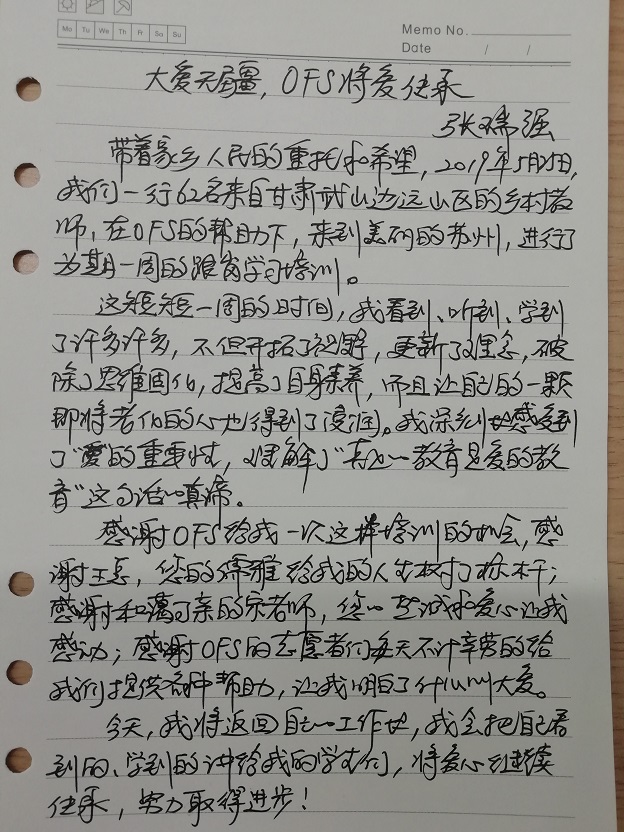 Memo No.
Mo Tu We Th Fr Sa Su
Date / /
大爱无疆，OFS将爱传承
张瑞强
带着家乡人民的重托和希望，2019年5月21日，
我们一行62名来自甘肃武山边远山区的乡村教
师，在OFS的帮助下，来到美丽的苏州，进行了
为期一周的跟岗学习培训。
这短短一周的时间，我看到、听到、学到
了许多许多，不但开拓了视野，更新了理念，破
除了思维固化，提高了自身素养，而且让自己的一颗
即将老化的心也得到了浸润。我深刻地感受到
了“爱”的重要性，理解了“真正的教育是爱的教
育”这句话的真谛。
感谢OFS给我一次这样培训的机会，感
谢王总，您的儒雅给我的人生树了标杆；
感谢和蔼可亲的宋老师，您的真诚和爱心让我
感动；感谢OFS的志愿者们每天不计辛劳的给
我们提供各种帮助，让我明白了什么叫大爱。
今天，我将返回自己的工作地，我会把自己看
到的、学到的讲给我的学生们，将爱心继续
传承，努力取得进步！